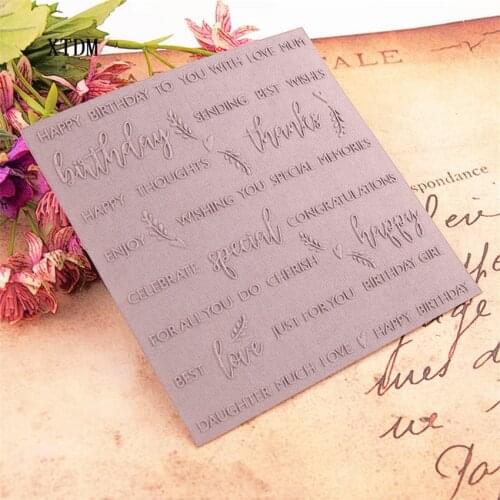 XTDM
HAPPY BIRTHDAY TO YOU WITH LOVE MUM
birthday SENDING BEST WISHES
thanks
HAPPY THOUGHTS
ENJOY WISHING YOU SPECIAL MEMORIES
CELEBRATE special CONGRATULATIONS
happy
FOR ALL YOU DO CHERISH
BEST love JUST FOR YOU BIRTHDAY GIRL
DAUGHTER MUCH LOVE HAPPY BIRTHDAY
ALE
spondance